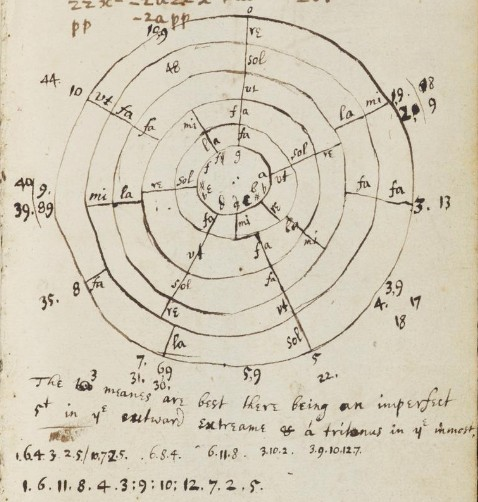 2zx-
pp -2app
0
10,9
re
48
sol
44.
10
ut
fa
fa
ut
la
mi
19
28
20
9
mi
fa
la
fa
sol
re
ut
fa
fa
3.
13
40 9.
39. 89
mi
la
re
sol
re
la
mi
mi
fa
ut
fa
sol
fa
ut
35.
8
fa
re
3,9
4.
17
18
la
sol
7.
69
31. 30.
5,9
5
22.
The 3 meanes are best there being an imperfect
5t in ye outward extreame & a tritonus in ye inmost.
1.6.4.3.2.5/10.7.2.5. . 6.8.4. . 6.11.8 . 3.10.2. 3.9.10.12.7.
1. 6. 11. 8. 4. 3; 9: 10; 12. 7. 2. 5.